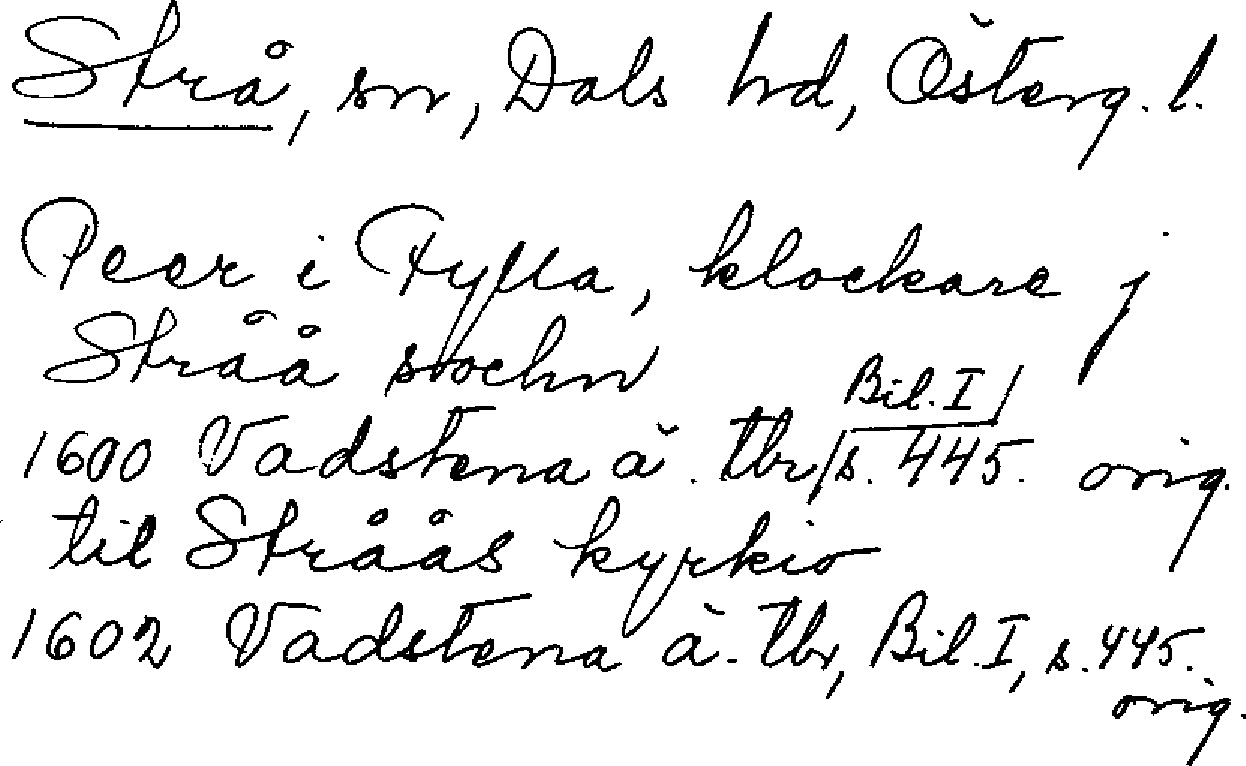 Strå, sn, Dals hd, Österg. l.
Peer i Fylla, klockare j
Stråå sochn
1600 Vadstena ä. tbr, Bil. I, s. 445. orig.
til Stråås kyrkio
1602 Vadstena ä. tbr, Bil. I, s. 445.
orig.